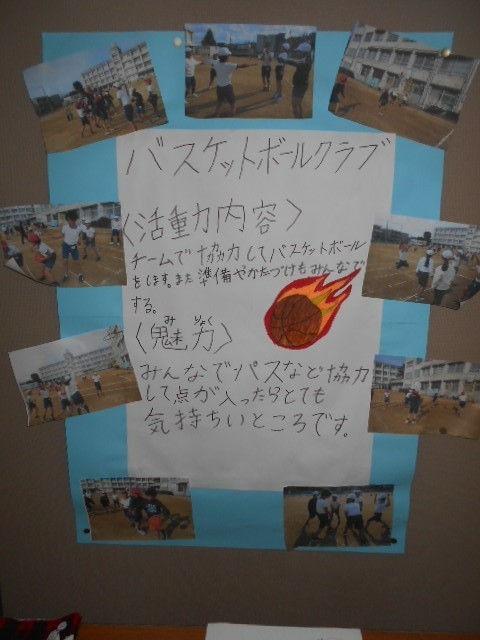 バスケットボールクラブ
〈活動内容〉
チームで協力してバスケットボール
をします。また準備やかたづけもみんなで
する。
〈魅力〉
みりょく
みんなでパスなど協力
して点が入ったらとても
気持ちいところです。